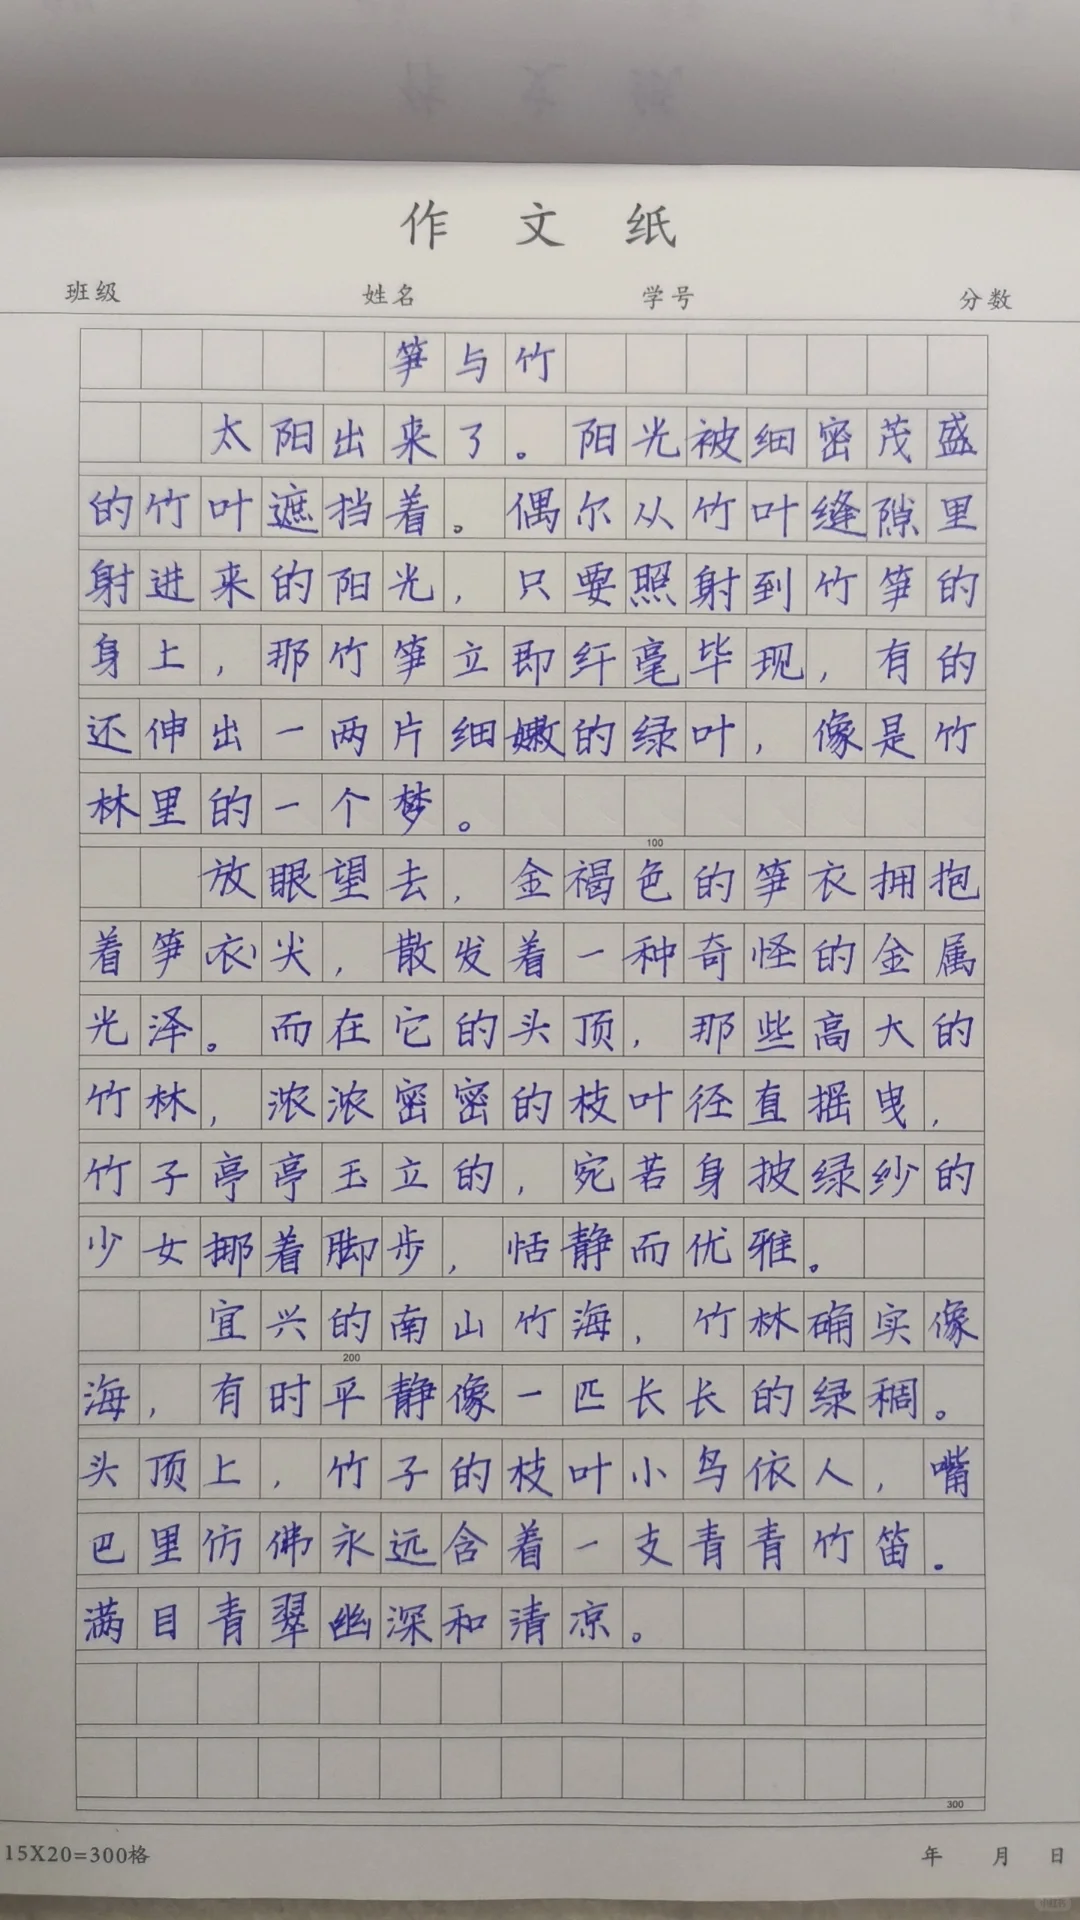 作文纸
班级 姓名 学号 分数
笋与竹
太阳出来了。阳光被细密茂盛
的竹叶遮挡着。偶尔从竹叶缝隙里
射进来的阳光，只要照射到竹笋的
身上，那竹笋立即纤毫毕现，有的
还伸出一两片细嫩的绿叶，像是竹
林里的一个梦。
100
放眼望去，金褐色的笋衣拥抱
着笋衣尖，散发着一种奇怪的金属
光泽。而在它的头顶，那些高大的
竹林，浓浓密密的枝叶径直摇曳，
竹子亭亭玉立的，宛若身披绿纱的
少女挪着脚步，恬静而优雅。
宜兴的南山竹海，竹林确实像
200
海，有时平静像一匹长长的绿稠。
头顶上，竹子的枝叶小鸟依人，嘴
巴里仿佛永远含着一支青青竹笛。
满目青翠幽深和清凉。
300
15X20=300格 年 月 日